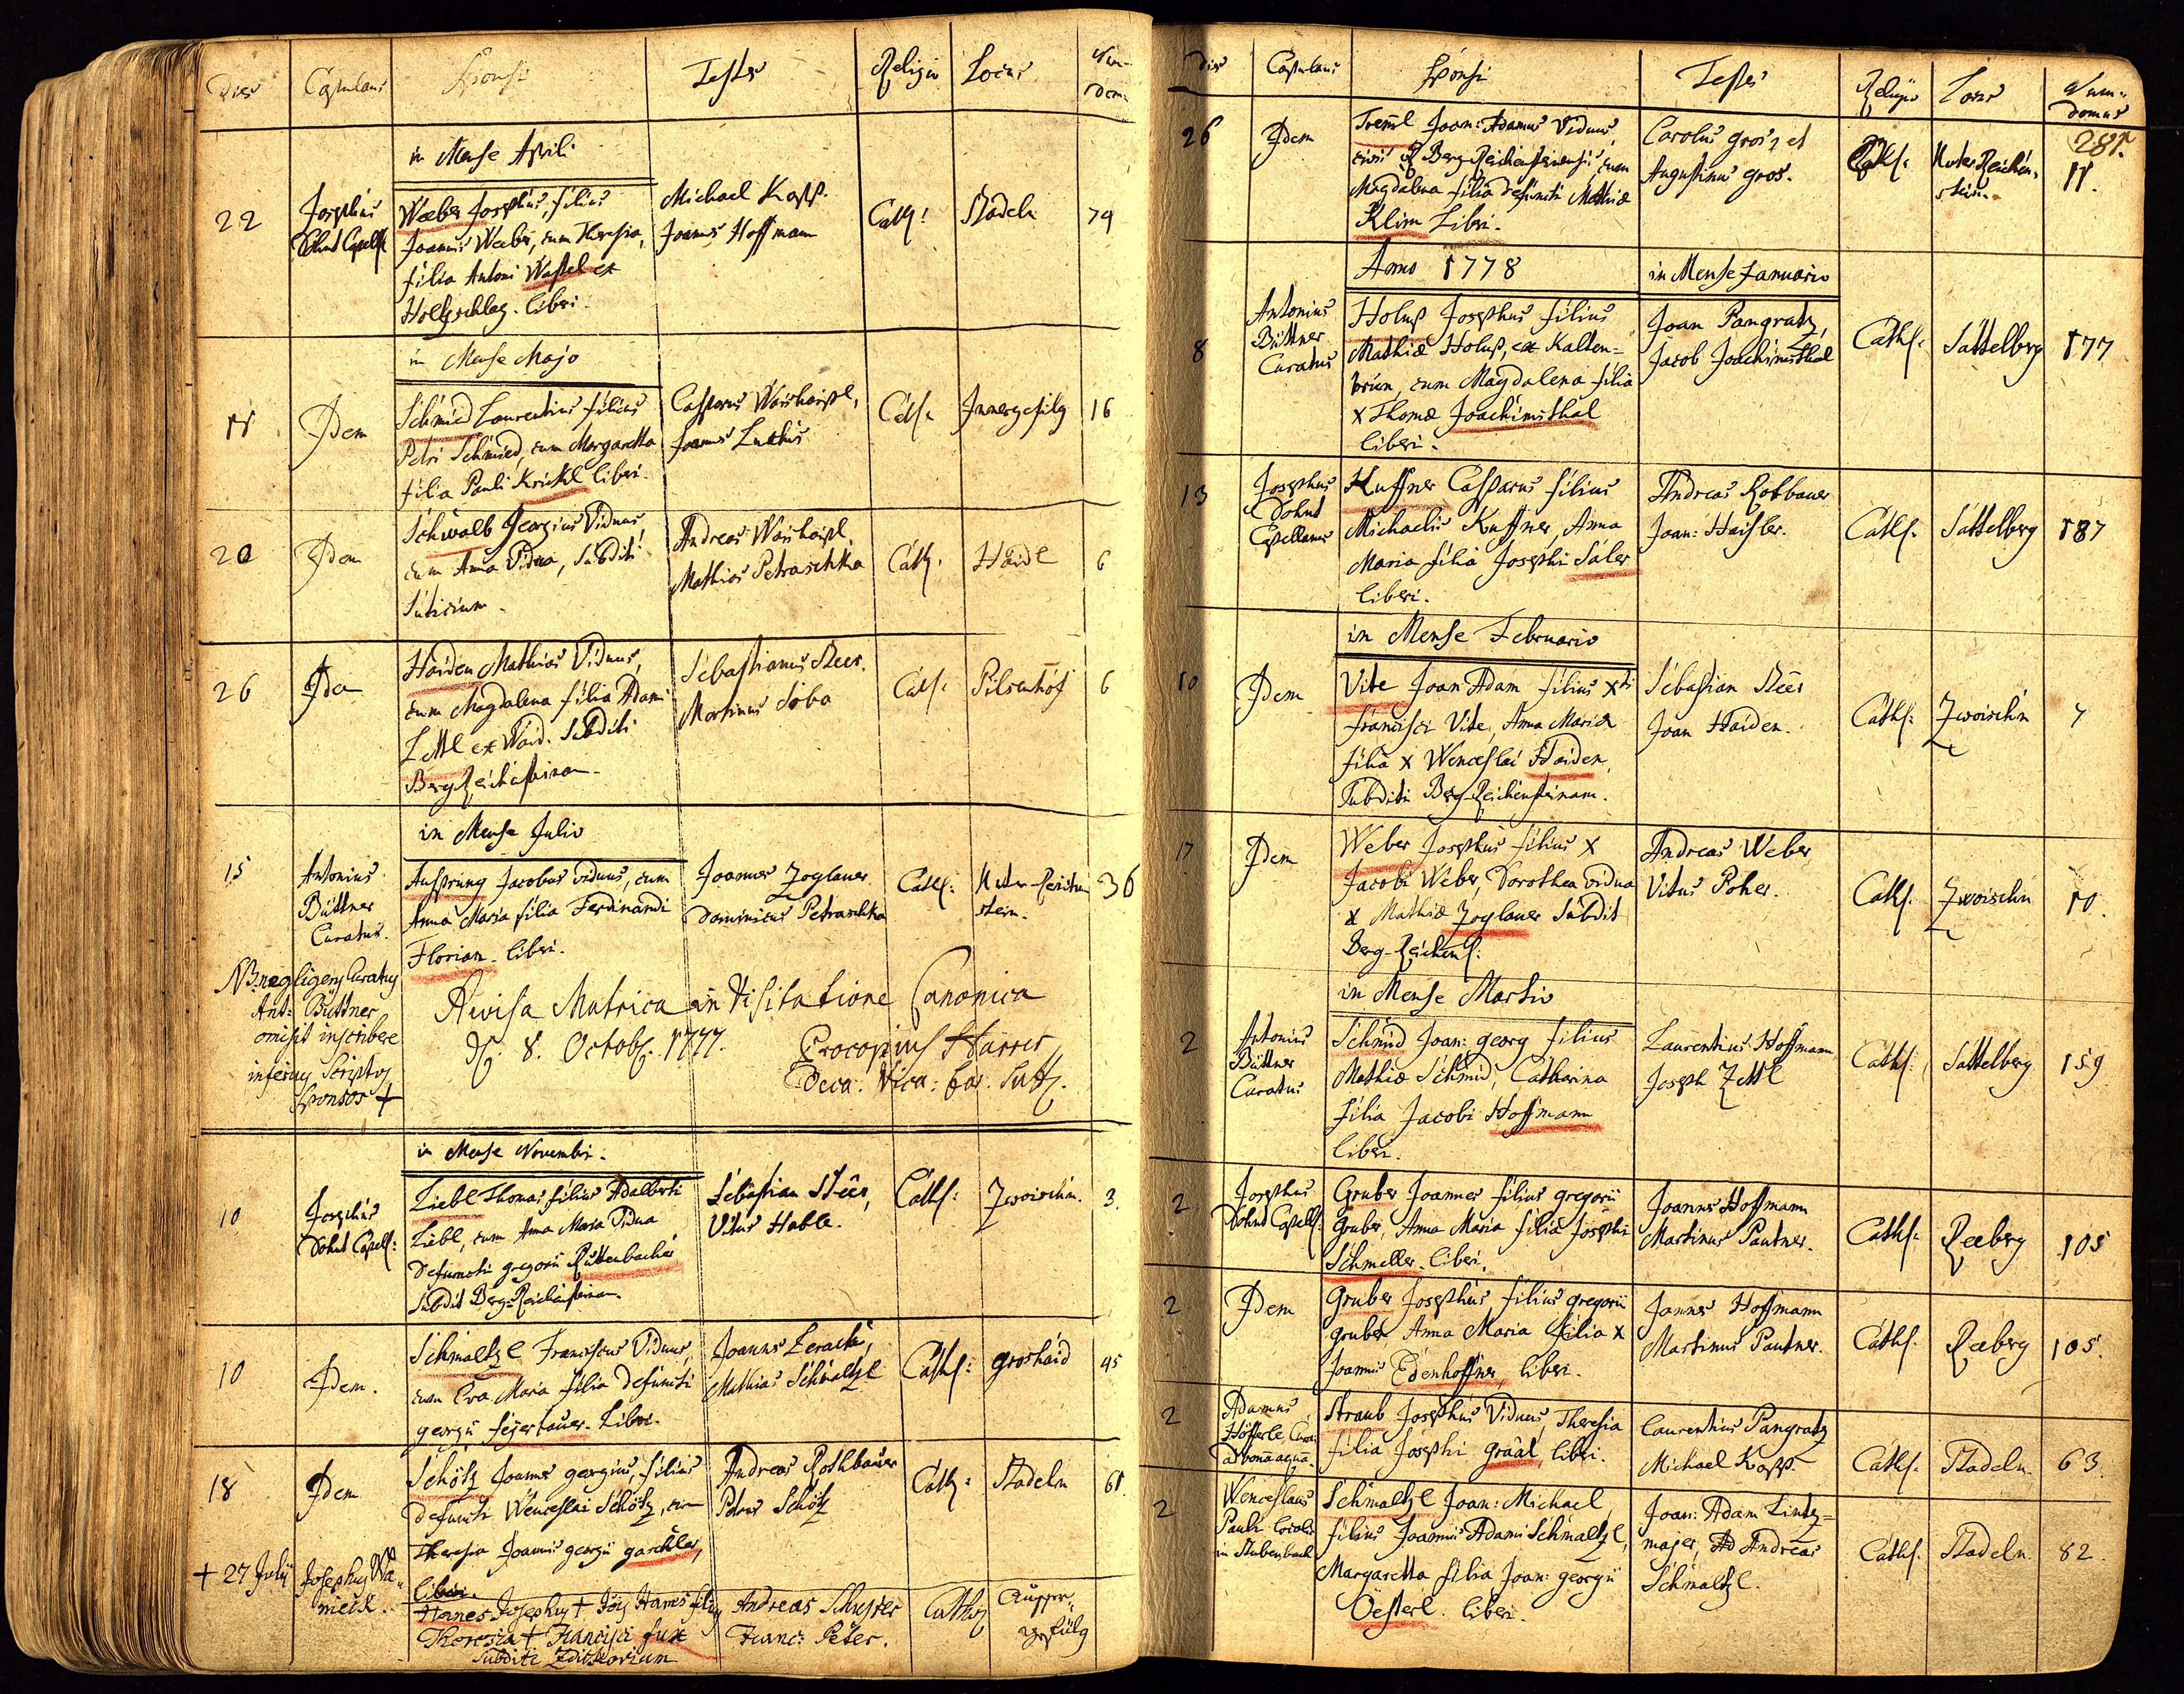 Dies Copulans Sponsi Testes Religio Locus Num: dom:
in Mense Aprili
22
Josephus
Dohnt Capell:
Weeber Josephus, filius
Joannis Weeber, cum Theresia,
filia Antoni Wastel ex
Holtzschlag. liberi.
Michael Kopp.
Joannes Hoffmann
Cath: Stadeln 79
in Mense Majo
11 Idem
Schmied Laurentius filius
Petri Schmied, cum Margaretta
filia Pauli Krickl liberi.
Casparus Waishaipl,
Joannes
Cath: Innergefilg 16
20 Idem
Schwalb Georgius Viduus,
cum Anna Vidua, Subditi
Andreas Waishaipl,
Mathias Petraschka
Cath: Haidl 6
26 Idem
Haiden Mathias Viduus,
cum Magdalena filia Adami
Zettl ex Waid. Subditi
BergReichensteinam.
Sebastianus Steer.
Martinus Soba
Cath: Pilsenhof 6
in Mense Julio
15
Antonius
Büttner
Curatus.
Aufsprung Jacobus viduus, cum
Anna Maria filia Ferdinandi
Florian. liberi.
Joannes Zoglauer
Dominicus Petraschka
Cath: Unter-Reichenstein. 36
NB. negligens Curatus
Ant: Büttner
omisit inscribere
inferius Scriptos
Sponsos +
Revisa Matrica in Visitatione Canonica
d. 8. Octob: 1777.
Procopius Harrer
Deca: Vica: For: Sutt:
in Mense Novembri.
10
Josephus
Dohnt Capell:
Liebl Thomas filius Adalberti
Liebl, cum Anna Maria Vidua
defuncti gregorii Ruttenbacher
Subdit Berg-Reichensteinam.
Sebastian Steer,
Vitus Hable.
Cath: Zwoischn. 3.
10 Idem.
Schmaltzl Franciscus Viduus,
cum Eva Maria filia defuncti
georgii feyerbauer. liberi.
Joannes
Mathias Schmaltzl
Cath: groshaid 45
18 Idem
Schötz Joannes georgius, filius
defuncti Wenceslai Schötz, cum
Theresia Joannis georgii garchler,
liberi.
Andreas Rothbauer
Petrus Schötz
Cath: Stadeln 61.
+ 27 Julij
Josephus
Hanes Josephus + Jois Hanes filius
Theresia + Francisci fux
Subditi
Andreas Schuster
Franc: Peter.
Cathol:
Dies Copulans Sponsi Testes Religio Locus Num: domus
281.
26 Idem
Treml Joan: Adamus Viduus,
civis R Berg-Reichensteinensis, cum
Magdalena filia defuncti Mathiæ
Klim Liberi.
Carolus gros, et
Augustinus gros.
Cath: Unter Reichenstein. 11.
Anno 1778
in Mense Januario
8
Antonius
Büttner
Curatus
Holub Josephus filius
Mathiæ Holub, ex Kaltenbrun, cum Magdalena filia
x Thomæ Joachimsthal
liberi.
Joan Pangratz,
Jacob Joachimsthal
Cath: Sattelberg 177
13
Josephus
Dohnt
Capellanus
Kuffner Casparus filius
Michaelis Kuffner, Anna
Maria filia Josephi Saler
liberi.
Andreas Rotbauer
Joan: Haisler.
Cath: Sattelberg 187
in Mense Februario
10 Idem
Vite Joan Adam filius xti
francisci Vite, Anna Maria
filia x Wenceslai Haiden,
Subditi Berg-Reichensteinam.
Sebastian Steer
Joan Haiden.
Cath: Zwoischn 7
17 Idem
Weber Josephus filius x
Jacobi Weber, Dorothea vidua
x Mathiæ Zoglauer Subdit
Berg-Reichens:
Andreas Weber,
Vitus Poher.
Cath: Zwoischn 10.
in Mense Martio
2
Antonius
Büttner
Curatus
Schmid Joan: georg filius
Mathiæ Schmid, Catharina
filia Jacobi Hoffmann
liberi.
Laurentius Hoffmann
Joseph Zettl
Cath: Sattelberg 159
2
Josephus
Dohnt Capell:
Gruber Joannes filius gregorii
Gruber, Anna Maria filia Josephi
Schmeller. liberi.
Joannes Hoffmann
Martinus Pautner.
Cath: Reeberg 105
2 Idem
Gruber Josephus, filius gregorii
gruber Anna Maria filia x
Joannis Edenhoffner, liberi.
Joannes Hoffmann
Martinus Pautner.
Cath: Reeberg 105.
2
Adamus
Höfferle, Cura:
ad bonā aquā.
Straub Josephus Viduus, Theresia
filia Josephi graal, liberi.
Laurentius Pangratz
Michael Kopp.
Cath: Stadeln. 63.
2
Wenceslaus
Pauli Localis
in Stubenbach
Schmaltzl Joan: Michael
filius Joannis Adami Schmaltzl,
Margaretta filia Joan: georgii
Oesterl. liberi.
Joan: Adam Lintzmajer, Ad Andreas
Schmaltzl.
Cath: Stadeln. 82.